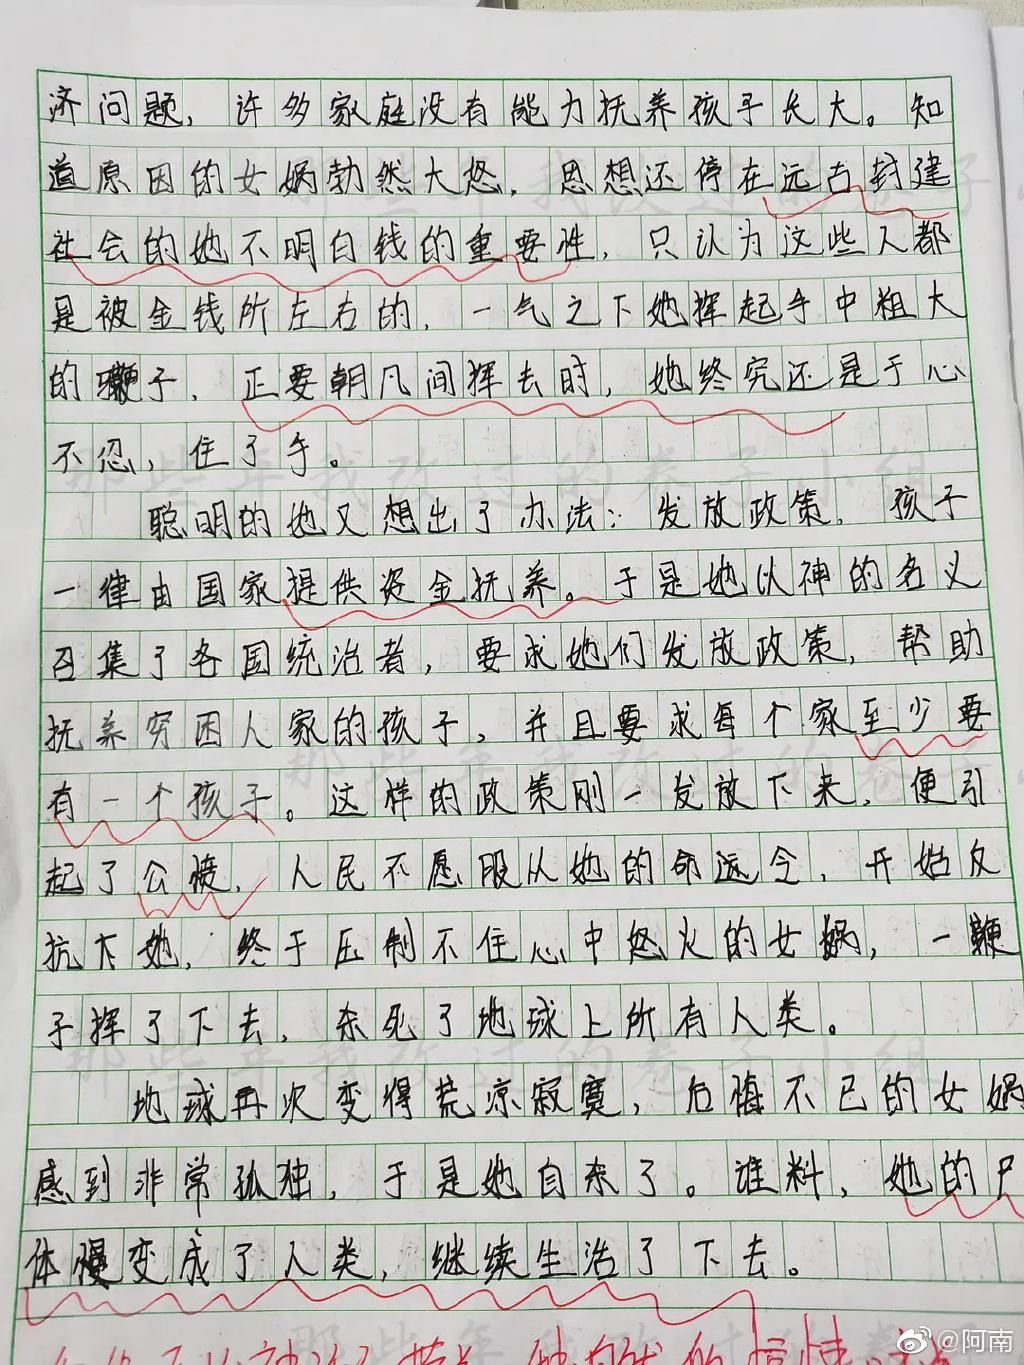 济问题，许多家庭没有能力抚养孩子长大。知
道原因的女娲勃然大怒，思想还停在远古封建
社会的她不明白钱的重要性，只认为这些人都
是被金钱所左右的，一气之下她挥起手中粗大
的鞭子，正要朝凡间挥去时，她终究还是于心
不忍，住了手。
聪明的她又想出了办法：发放政策，孩子
一律由国家提供资金抚养。于是她以神的名义
召集了各国统治者，要求她们发放政策，帮助
抚养穷困人家的孩子，并且要求每个家至少要
有一个孩子。这样的政策刚一发放下来，便引
起了公愤，人民不愿服从她的命令，开始反
抗她，终于压制不住心中怒火的女娲，一鞭
子挥了下去，杀死了地球上所有人类。
地球再次变得荒凉寂寞，后悔不已的女娲
感到非常孤独，于是她自杀了。谁料，她的尸
体慢变成了人类，继续生活了下去。
那些年我改过的卷子小组
那些年我改过的卷子小组
@阿南